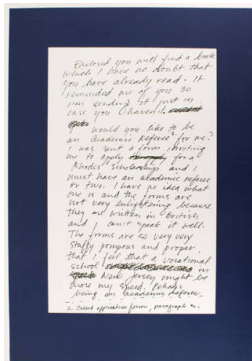 Enclosed you will find a book
which I have no doubt that
you have already read. It
reminded me of you so
am sending it just in
case you haven't.
would you like to be
an academic referee for me?
I was sent a form inviting
me to apply for a
Rhodes Scholarship and I
must have an academic referee
or two. I have no idea what
one is and the forms are
not very enlightening because
they are written in British
and I can't speak it well.
The forms are so very very
stuffy pompous and proper
that I feel that a vocational
school in
New Jersey might be
more my speed.
being an academic referee.